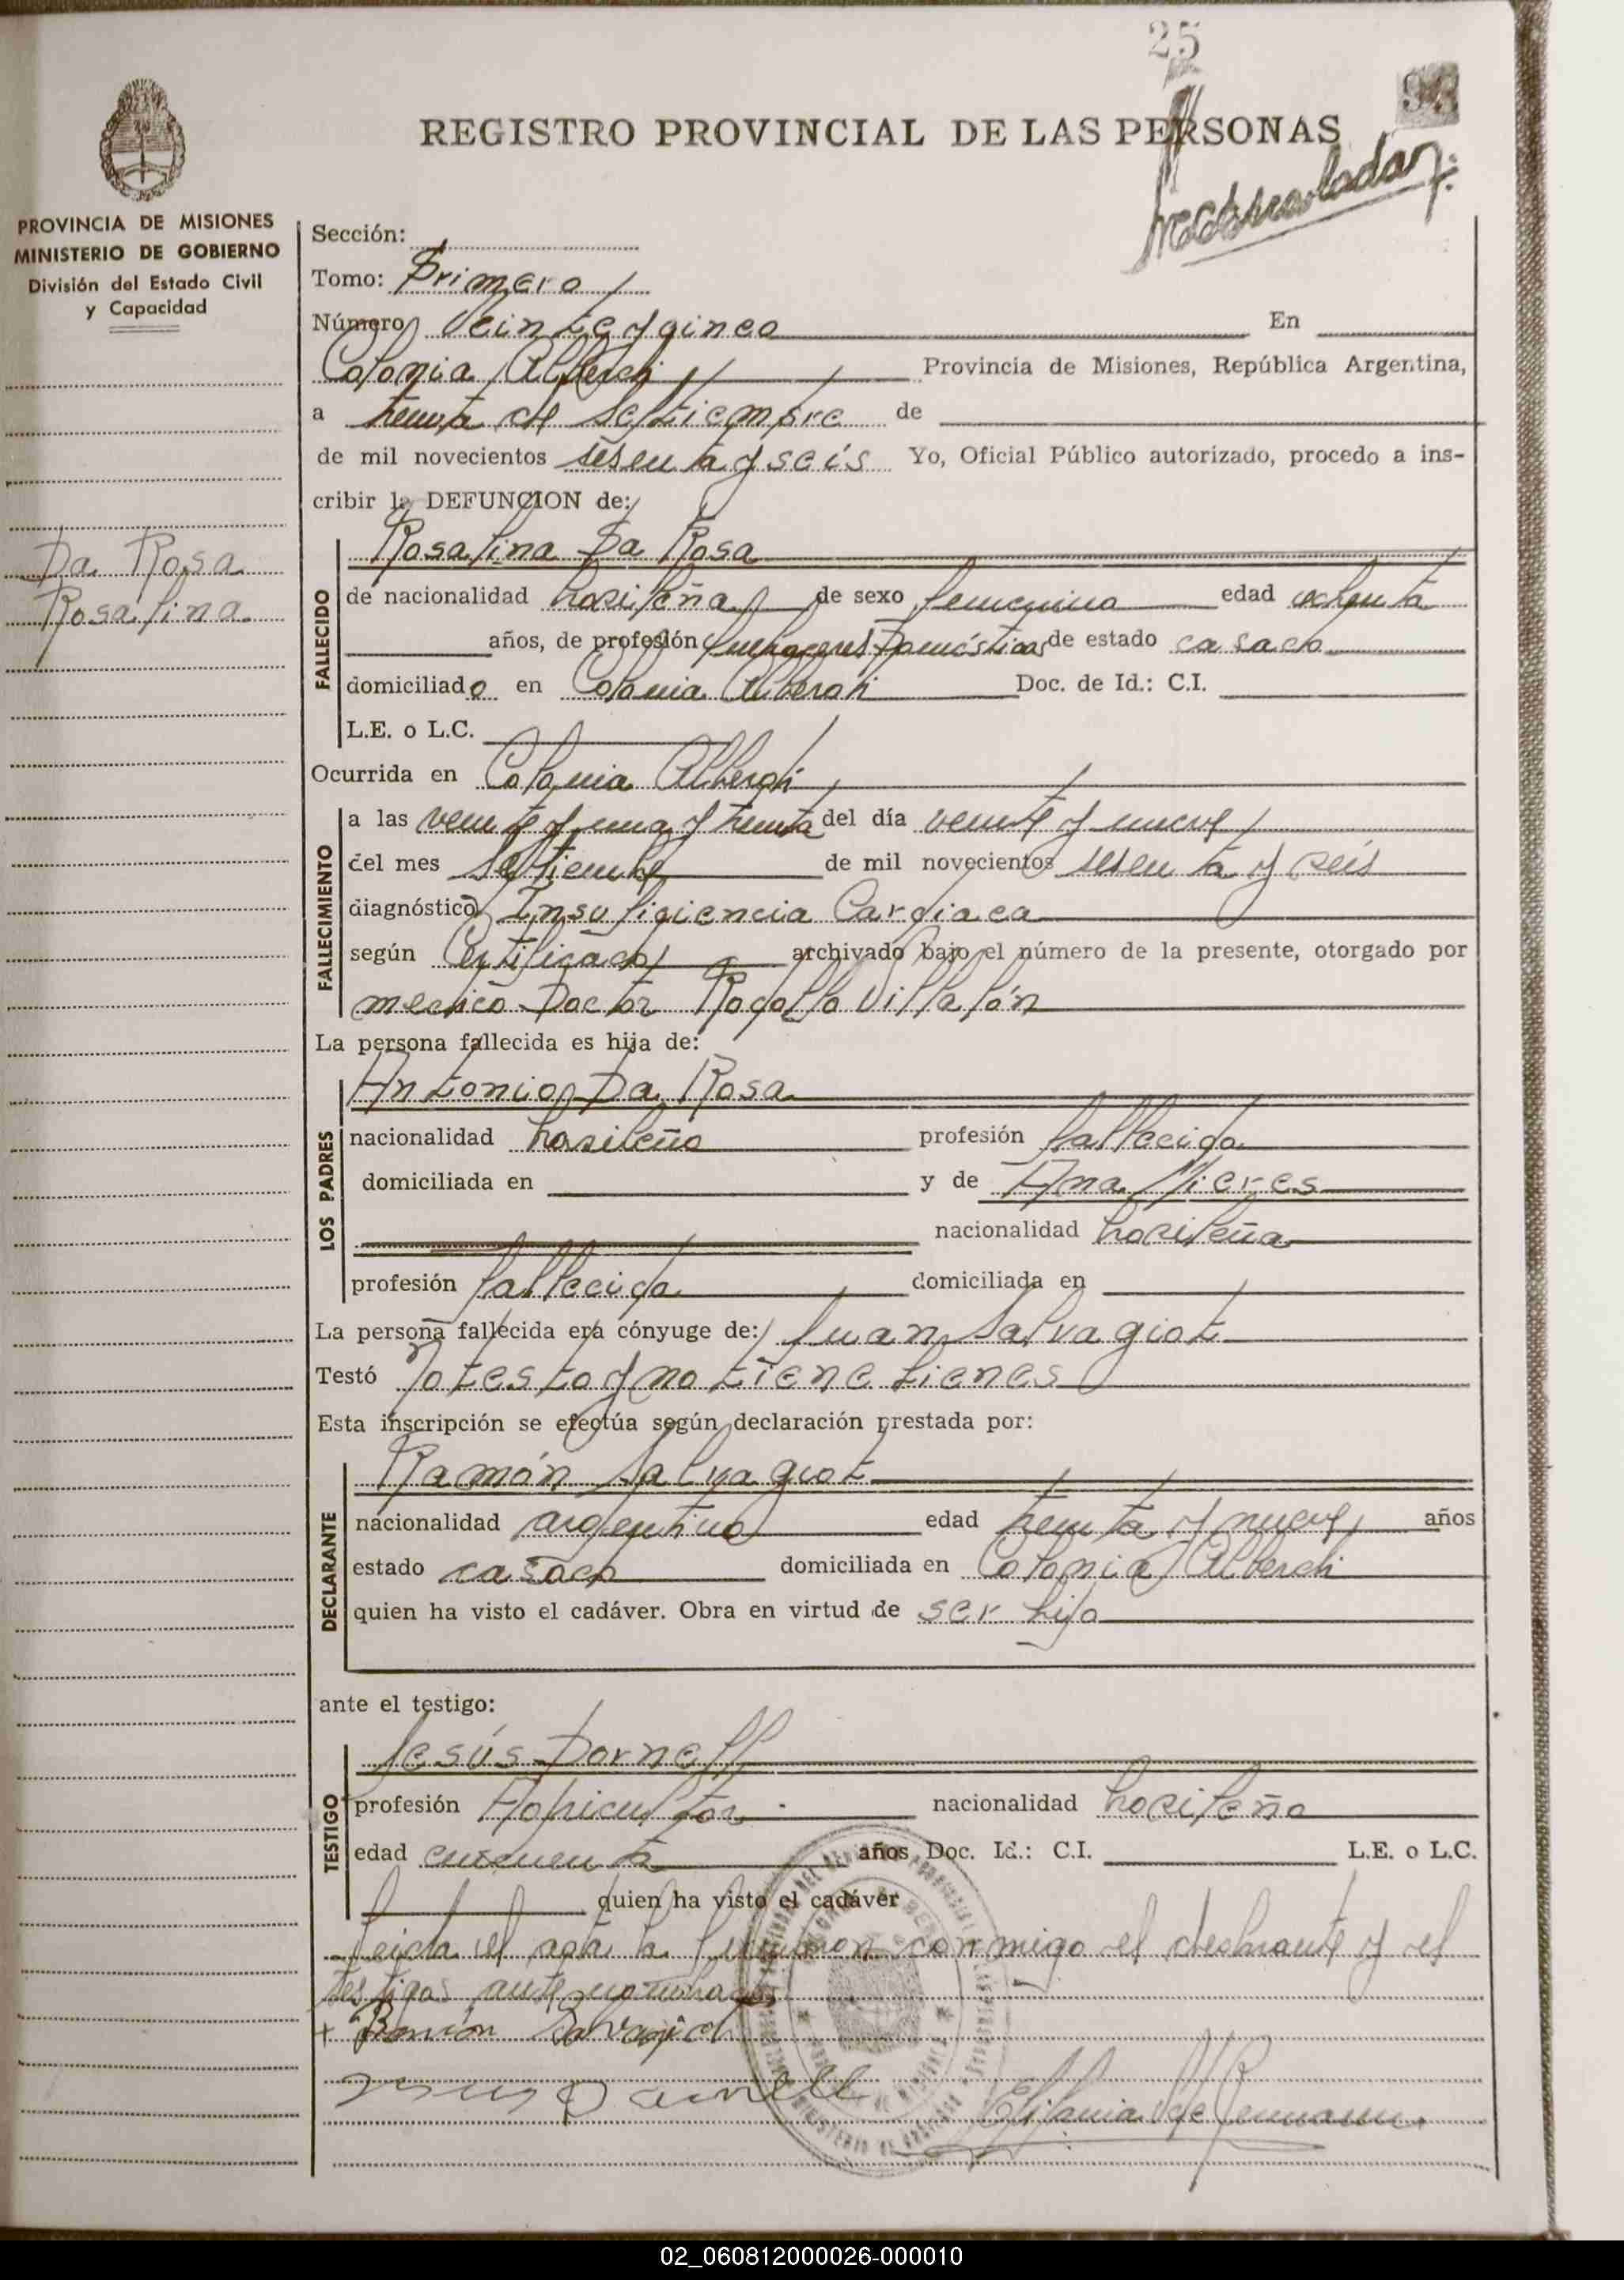 25
REGISTRO PROVINCIAL DE LAS PERSONAS
PROVINCIA DE MISIONES
MINISTERIO DE GOBIERNO
División del Estado Civil
y Capacidad
Da Rosa
Rosalina
Sección:
Tomo: Primero
Número Veinte y cinco En
Colonia Alberdi Provincia de Misiones, República Argentina,
a treinta de Septiembre de
de mil novecientos sesenta y seis Yo, Oficial Público autorizado, procedo a ins-
cribir la DEFUNCION de:
FALLECIDO
Rosalina Da Rosa
de nacionalidad brasileña de sexo femenino edad ochenta
años, de profesión quehaceres Domésticos de estado casado
domiciliado en Colonia Alberdi Doc. de Id.: C.I.
L.E. o L.C.
Ocurrida en Colonia Alberdi
FALLECIMIENTO
a las veinte y una y treinta del día veinte y nueve
del mes Septiembre de mil novecientos sesenta y seis
diagnóstico Insuficiencia Cardiaca
según Certificado archivado bajo el número de la presente, otorgado por
medico Doctor Rodolfo Villalón
La persona fallecida es hija de:
LOS PADRES
Antonio Da Rosa
nacionalidad brasileño profesión fallecido
domiciliada en y de Ana Mieres
nacionalidad brasileña
profesión fallecida domiciliada en
La persona fallecida era cónyuge de: Juan Salvagiot
Testó No testo y no tiene bienes
Esta inscripción se efectúa según declaración prestada por:
DECLARANTE
Ramón Salvagiot
nacionalidad argentino edad treinta y nueve años
estado casado domiciliada en Colonia Alberdi
quien ha visto el cadáver. Obra en virtud de ser hijo
ante el testigo:
TESTIGO
Jesús Dornell
profesión Agricultor nacionalidad brasileño
edad cincuenta años Doc. Id.: C.I. L.E. o L.C.
quien ha visto el cadáver
Leida el acta la firmaron conmigo el declarante y el
testigos antenombrados
+ Ramón Salvagiot
02_060812000026-000010